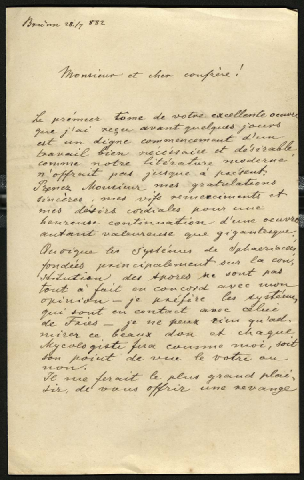 28/7 882
Monsieur et cher confrère!
Le prémier tome de votre excellente oeuvre
que j'ai reçu avant quelques jours
est un digne commencement d'un
travail bien nécéssaire et désirable
comme notre litérature moderne
n'offrait pas jusque à présent.
Prenez Monsieur mes gratulations
sincères, mes vifs remerciments et
mes désirs cordiales pour une
heureuse continuation d'une oeuvre
autant valeureuse que gigantesque.
Quoique les Systèmes de Sphaeriacées
fondiés principalement sur la con,
stitution des spores ne sont pas
tout à fait en concord avec mon
opinion – je préfère les systèmes
qui sont en contact avec celui
de Fries – je ne peux rien qu'ad,
mirer ce beaux don et chaque
Mycologiste fera comme moi, soit
son point de vue le votre ou
non.
Il me ferait le plus grand plai,
sir, de vous offrir une revange